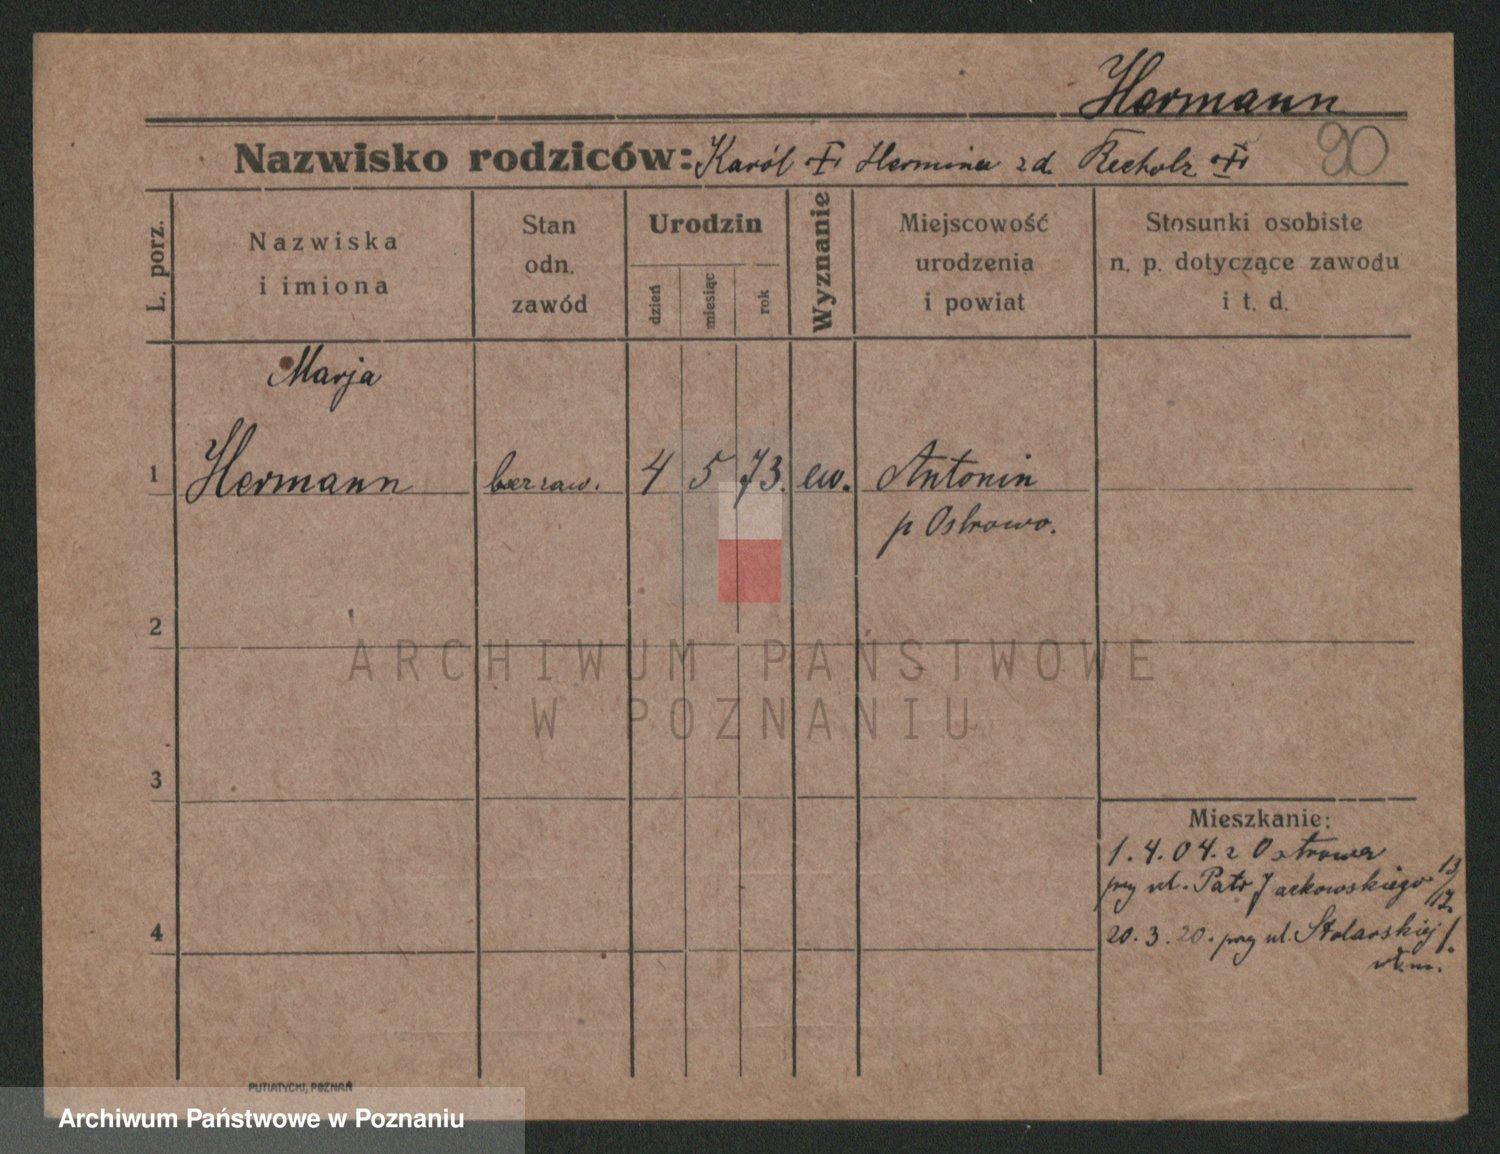 Hermann
Nazwisko rodziców: Karól Hermina zd. 90
L. porz.
Nazwiska
i imiona
Stan
odn.
zawód
Urodzin
dzień
miesiąc
rok
Wyznanie
Miejscowość
urodzenia
i powiat
Stosunki osobiste
n. p. dotyczące zawodu
i t. d.
Marja
1 Hermann bezzaw. 4 5 73. ew. Antonin
p Ostrowo.
2
ARCHIWUM PAŃSTWOWE
W POZNANIU
3
Mieszkanie:
1.4.04. z Ostrowa
przy ul. Patr Jackowskiego
4
20.3.20. przy ul. Stolarskiej 1.
PUTIATYCKI, POZNAŃ
Archiwum Państwowe w Poznaniu